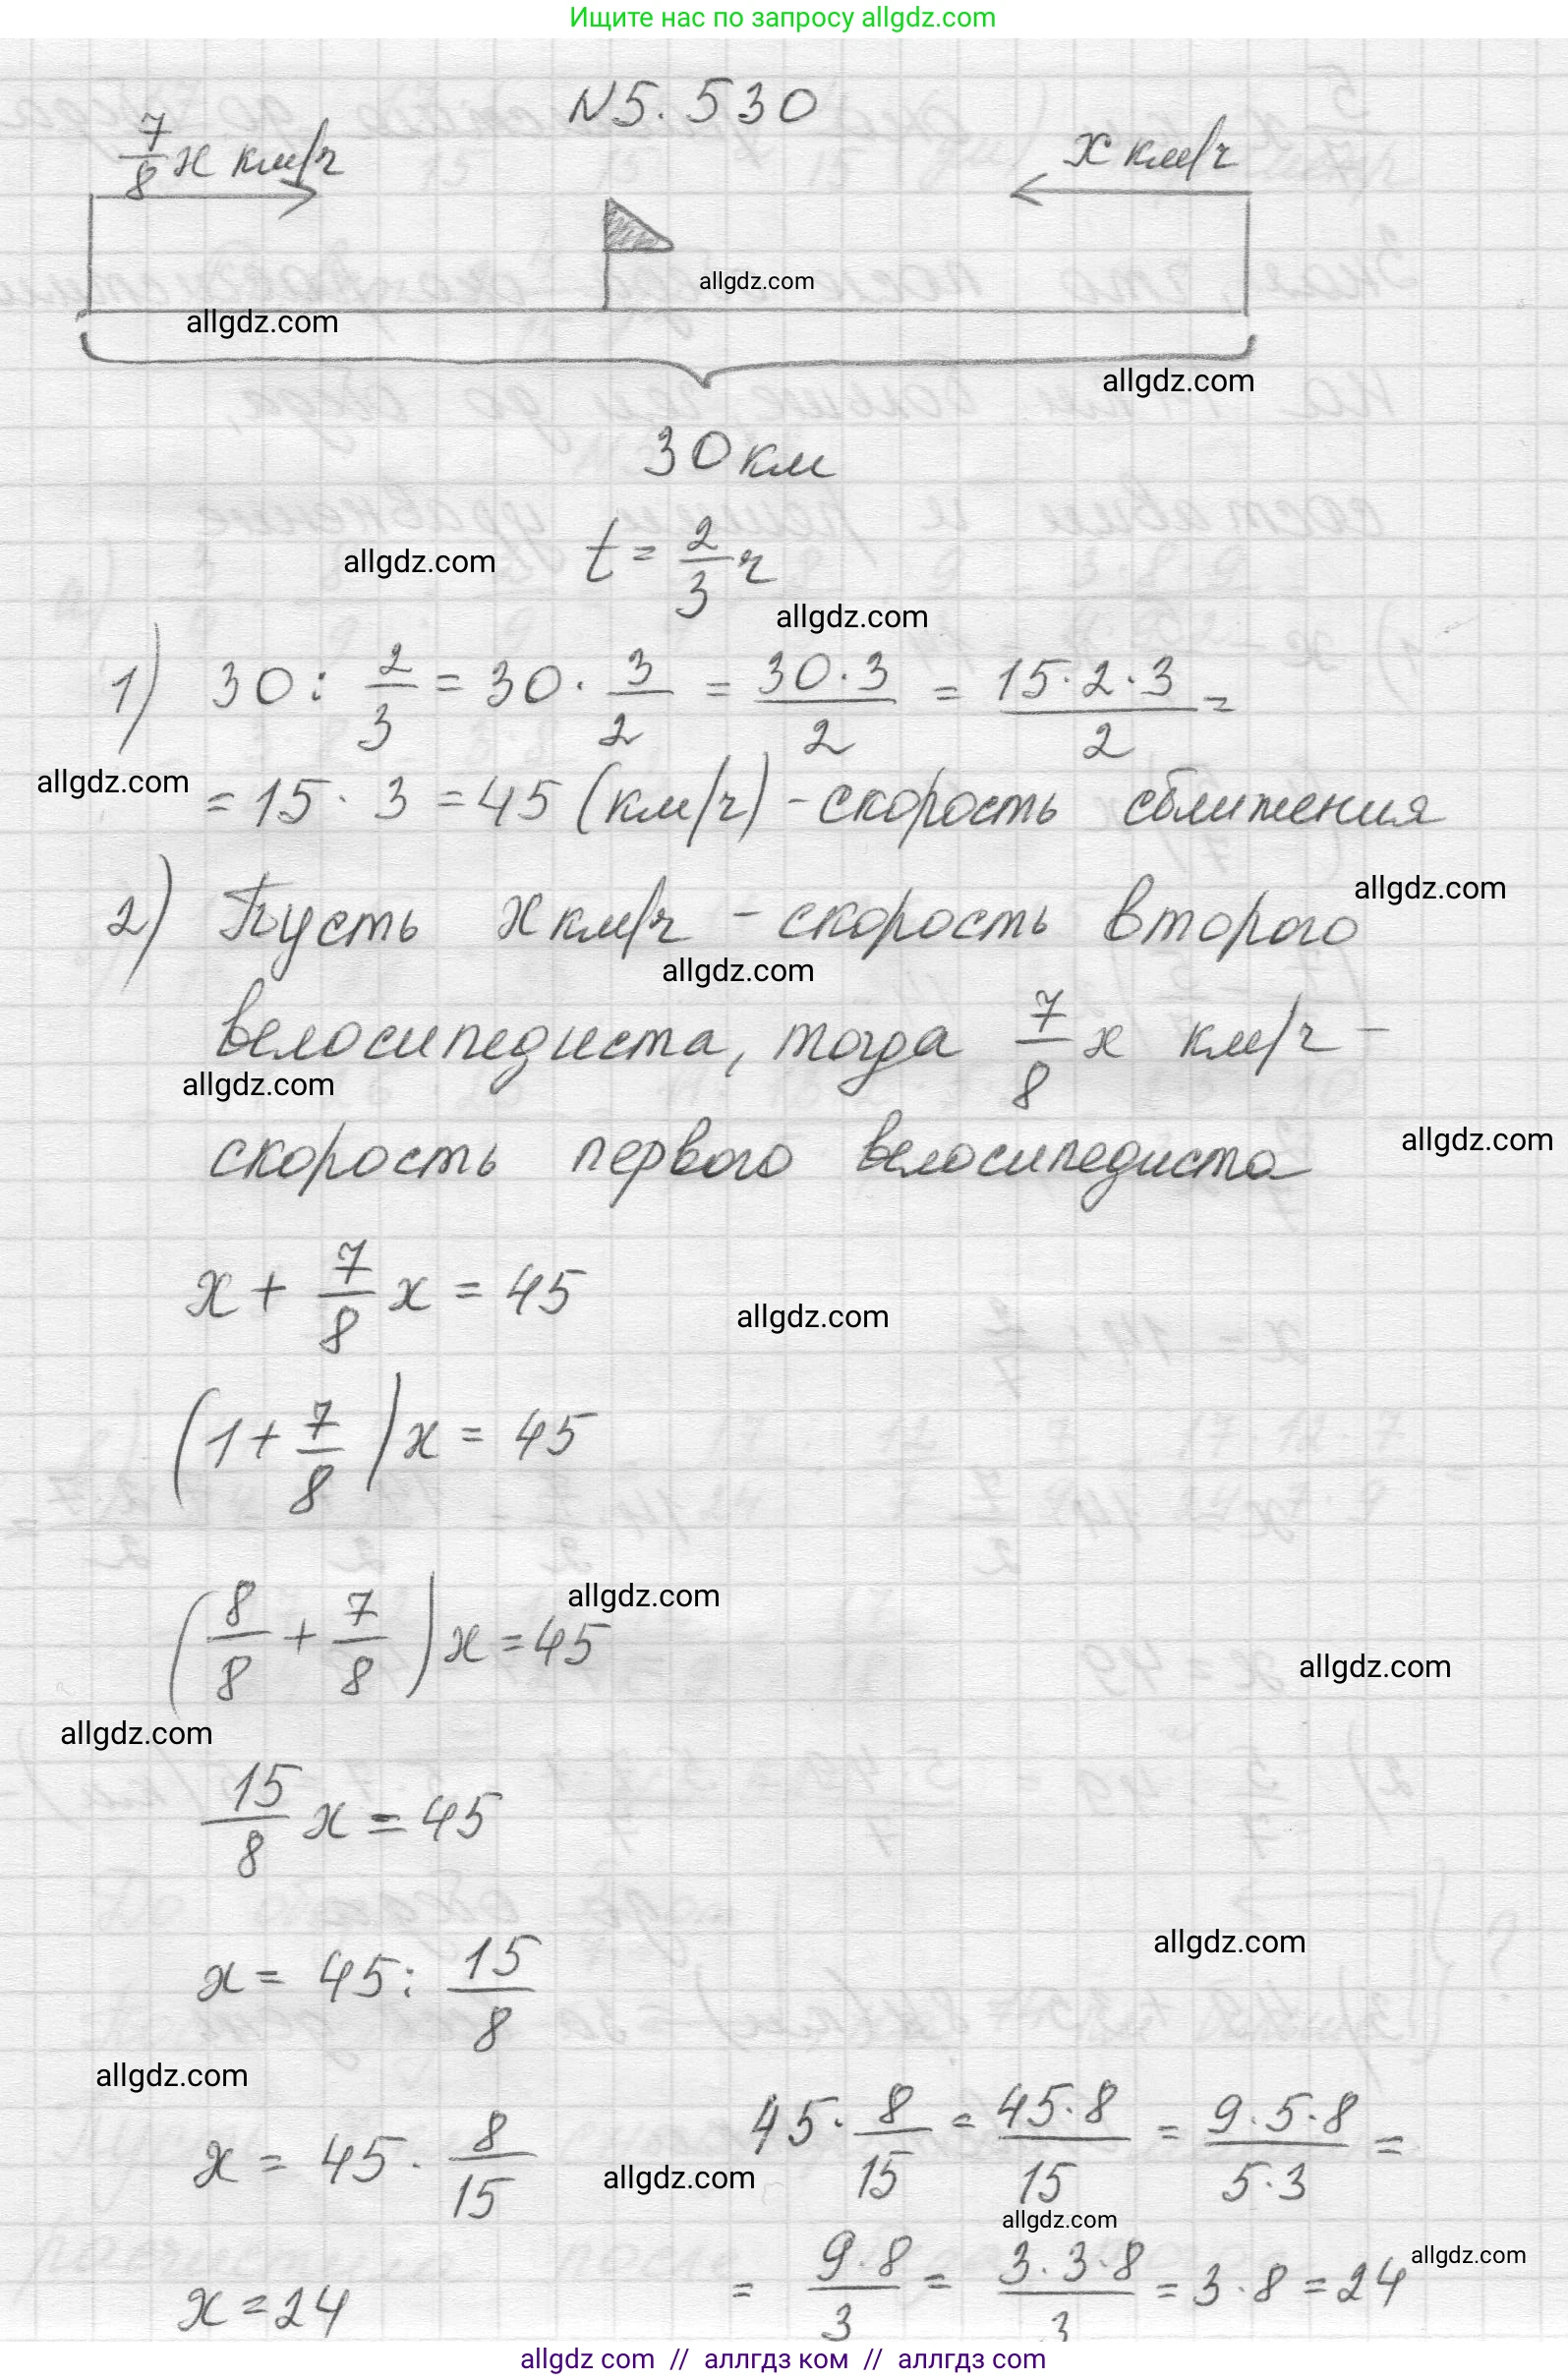 Ищите нас по запросу allgdz.com
N5.530
7/8 x км/ч
x км/ч
allgdz.com
allgdz.com
allgdz.com
30 км
allgdz.com
t = 2/3 ч
allgdz.com
1) 30 : 2/3 = 30 · 3/2 = 30·3/2 = 15·2·3/2 =
allgdz.com
= 15 · 3 = 45 (км/ч) - скорость сближения
allgdz.com
2) Пусть x км/ч - скорость второго
allgdz.com
велосипедиста, тогда 7/8 x км/ч -
allgdz.com
allgdz.com
скорость первого велосипедиста
x + 7/8 x = 45
allgdz.com
(1 + 7/8) x = 45
allgdz.com
(8/8 + 7/8) x = 45
allgdz.com
allgdz.com
15/8 x = 45
allgdz.com
x = 45 : 15/8
allgdz.com
x = 45 · 8/15
45 · 8/15 = 45·8/15 = 9·5·8/5·3 =
allgdz.com
allgdz.com
= 9·8/3 = 3·3·8/3 = 3·8 = 24
allgdz.com
x = 24
allgdz com // аллгдз ком // аллгдз com